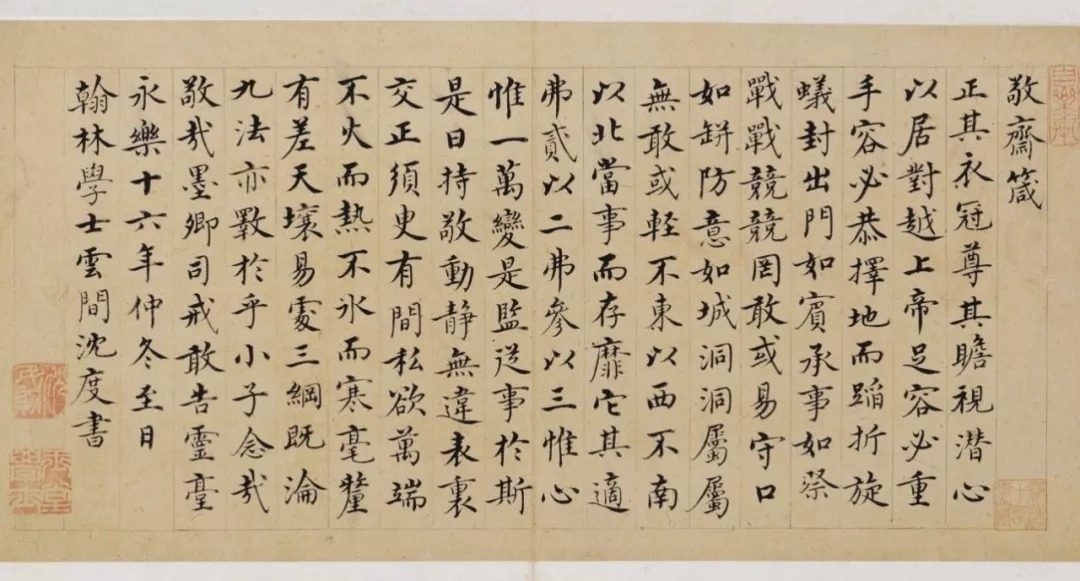 敬齋箴
正其衣冠尊其瞻視潛心
以居對越上帝足容必重
手容必恭擇地而蹈折旋
蟻封出門如賓承事如祭
戰戰競競罔敢或易守口
如缾防意如城洞洞屬屬
無敢或軽不東以西不南
以北當事而存靡它其適
弗貳以二弗參以三惟心
惟一萬變是監從事於斯
是曰持敬動靜無違表裏
交正須臾有間私欲萬端
不火而熱不氷而寒毫釐
有差天壤易處三綱既淪
九法亦斁於乎小子念㢤
敬㢤墨卿司戒敢告靈臺
永樂十六年仲冬至日
翰林學士雲間沈度書